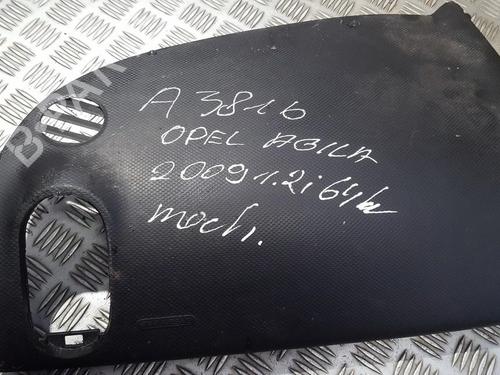 A 381b
OPEL AGILA
2009 1.2i 64kw
mech.